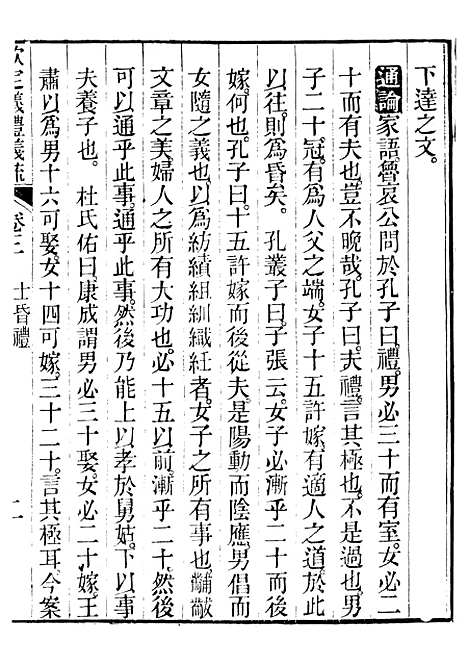 下達之文。
通論家語魯哀公問於孔子曰。禮。男必三十而有室。女必二
十而有夫也。豈不晚哉。孔子曰。夫禮。言其極也。不是過也。男
子二十。冠。有為人父之端。女子十五許嫁。有適人之道。於此
以往。則為昏矣。　孔叢子曰。子張云。女子必二十而後
嫁。何也。孔子曰。十五許嫁而後從夫。是陽動而陰應。男倡而
女隨之義也。以為紡績組紃織紝者。女子之所有事也。黼黻
文章之美。婦人之所有大功也。必十五以前漸乎二十。然後
可以通乎此事。通乎此事。然後乃能上以孝於舅姑。下以事
夫養子也。　杜氏佑曰。康成謂男必三十娶。女必二十嫁。王
肅以為男十六可娶。女十四可嫁。三十二十。言其極耳。今案
欽定儀禮義疏　卷三　士昏禮　二